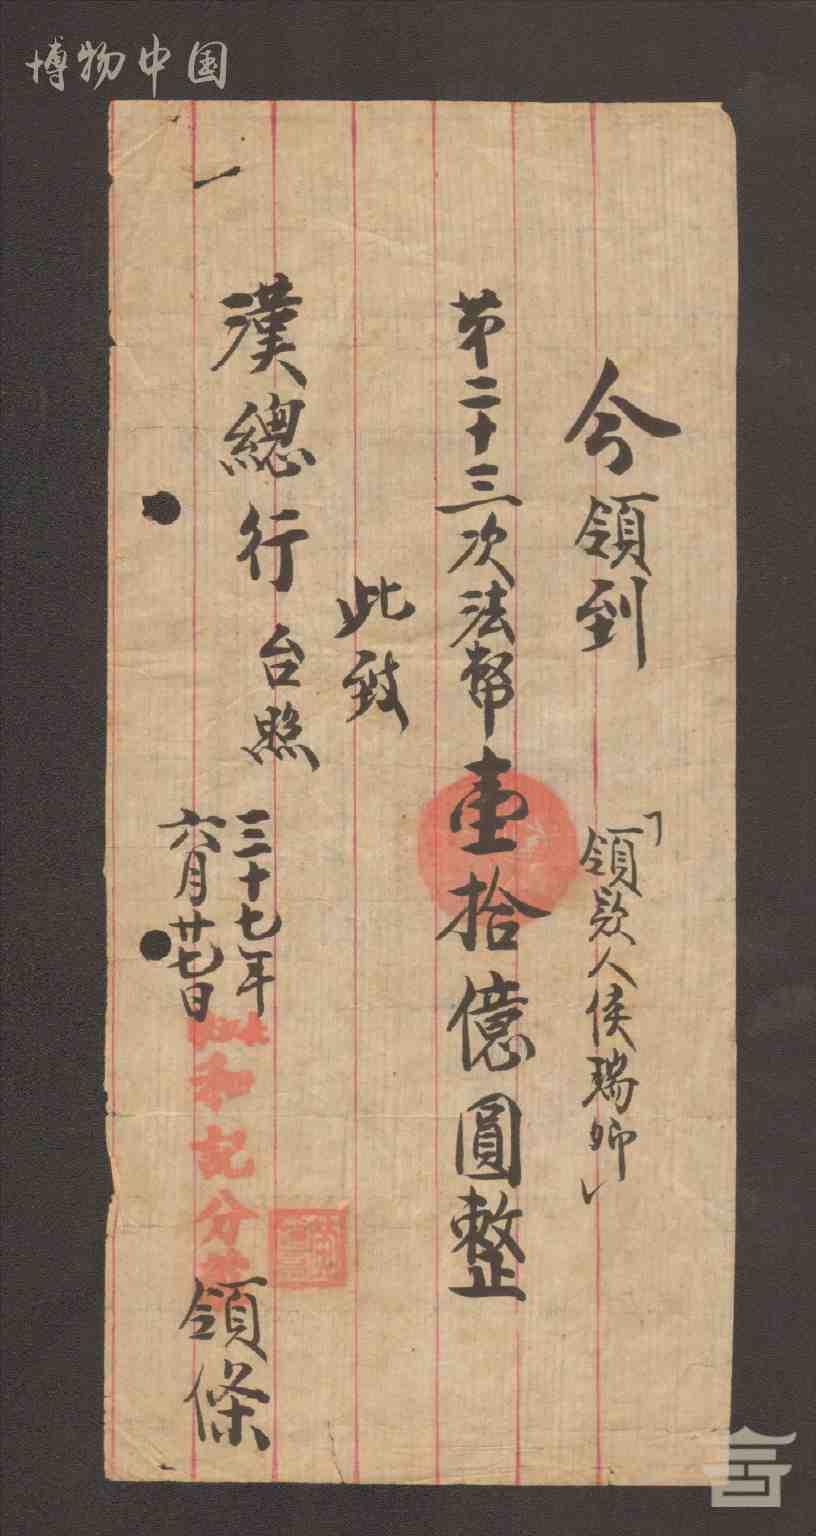 博物中国
今領到
「領款人侯瑞卿」
第二十三次法幣壹拾億圓整
此致
漢總行台照
三十七年
六月廿七日
和記分
領條